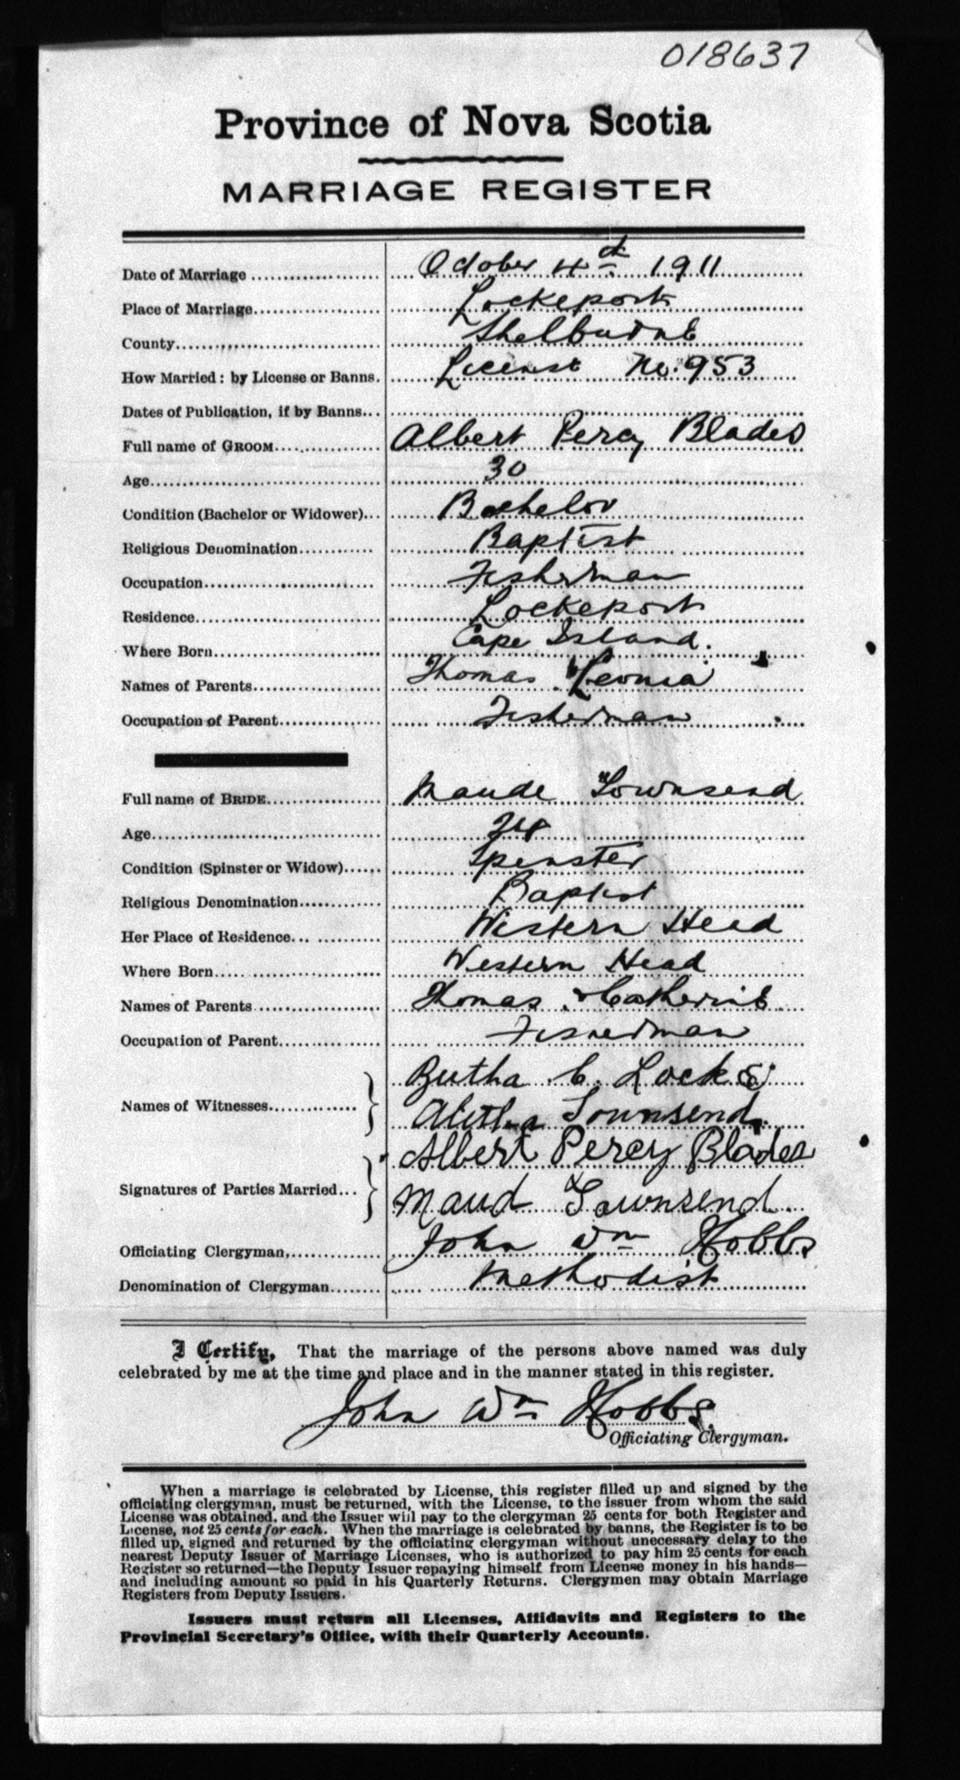 018637
Province of Nova Scotia
MARRIAGE REGISTER
Date of Marriage ... October 4th 1911
Place of Marriage ... Lockeport
County ... Shelburne
How Married: by License or Banns. License No. 953
Dates of Publication, if by Banns...
Full name of GROOM ... Albert Percy Blades
Age ... 30
Condition (Bachelor or Widower)... Bachelor
Religious Denomination ... Baptist
Occupation ... Fisherman
Residence ... Lockeport
Where Born ... Cape Island.
Names of Parents ... Thomas Leonia
Occupation of Parent ... Fisherman
Full name of BRIDE ... Maude Townsend
Age ...
Condition (Spinster or Widow)... Spinster
Religious Denomination ... Baptist
Her Place of Residence... Western Head
Where Born ... Western Head
Names of Parents ... Thomas & Catherine
Occupation of Parent ... Fisherman
Names of Witnesses ... C. Locke
Townsend
Signatures of Parties Married... Albert Percy Blades
Maud Townsend
Officiating Clergyman, ... John Wm Hobbs
Denomination of Clergyman ... Methodist
I Certify, That the marriage of the persons above named was duly
celebrated by me at the time and place and in the manner stated in this register.
John Wm Hobbs
Officiating Clergyman.
When a marriage is celebrated by License, this register filled up and signed by the
officiating clergyman, must be returned, with the License, to the issuer from whom the said
License was obtained, and the Issuer will pay to the clergyman 25 cents for both Register and
License, not 25 cents for each. When the marriage is celebrated by banns, the Register is to be
filled up, signed and returned by the officiating clergyman without unecessary delay to the
nearest Deputy Issuer of Marriage Licenses, who is authorized to pay him 25 cents for each
Register so returned—the Deputy Issuer repaying himself from License money in his hands—
and including amount so paid in his Quarterly Returns. Clergymen may obtain Marriage
Registers from Deputy Issuers.
Issuers must return all Licenses, Affidavits and Registers to the
Provincial Secretary's Office, with their Quarterly Accounts.